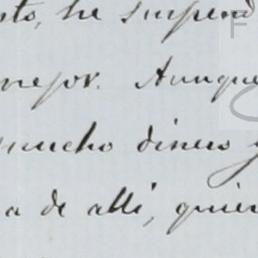 he suspend
mejor. Aunque
mucho dinero y
a de alli, quien